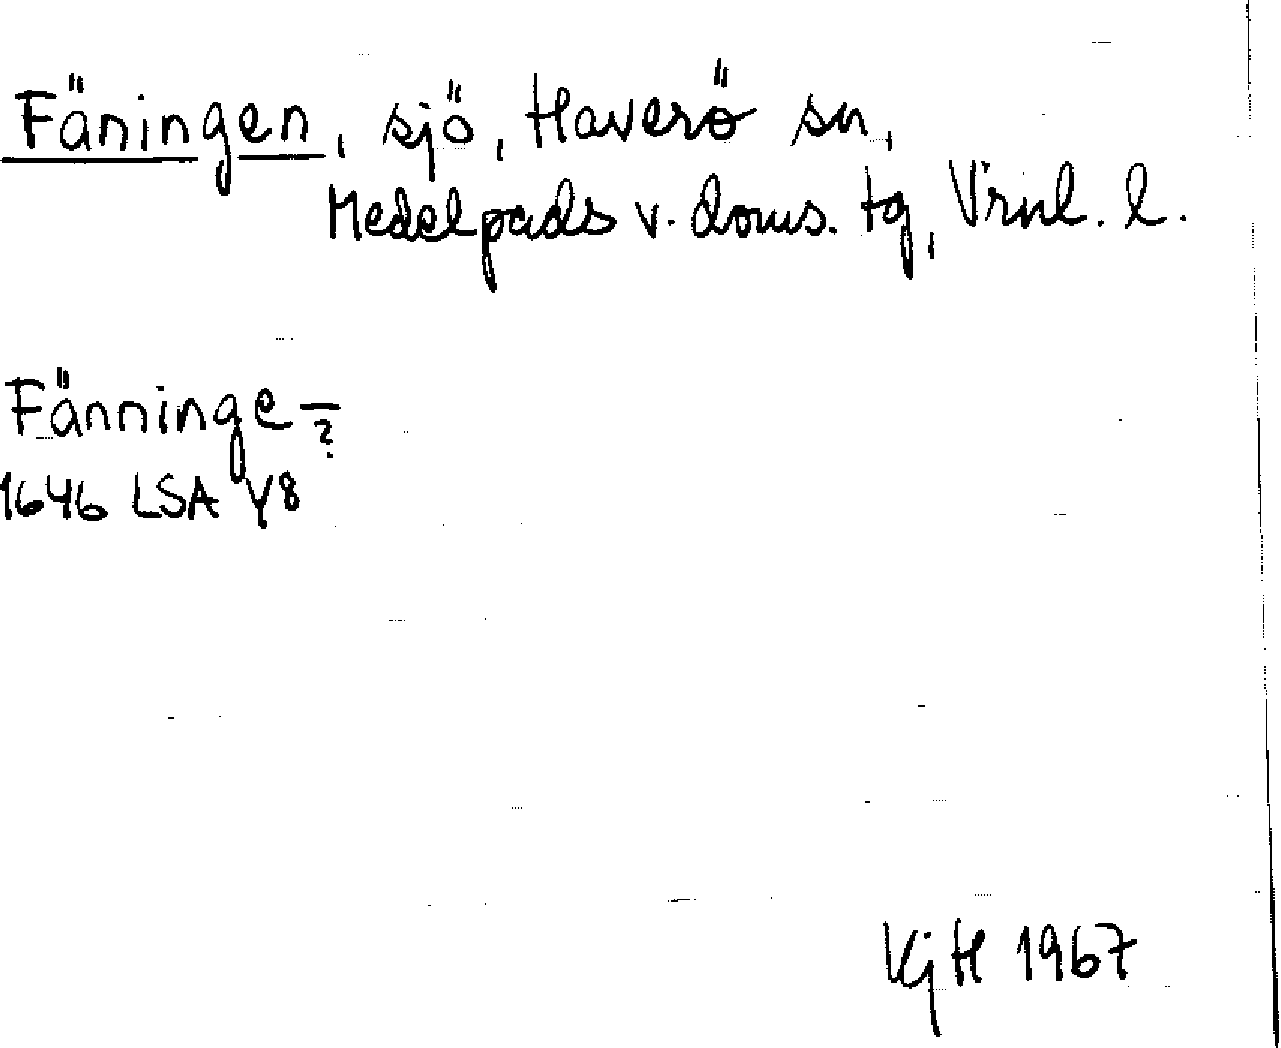 Fäningen, sjö, Haverö sn,
Medelpads v. doms. tg, Vrnl. l.
Fänninge-
?
1646 LSA Y8
VjH 1967